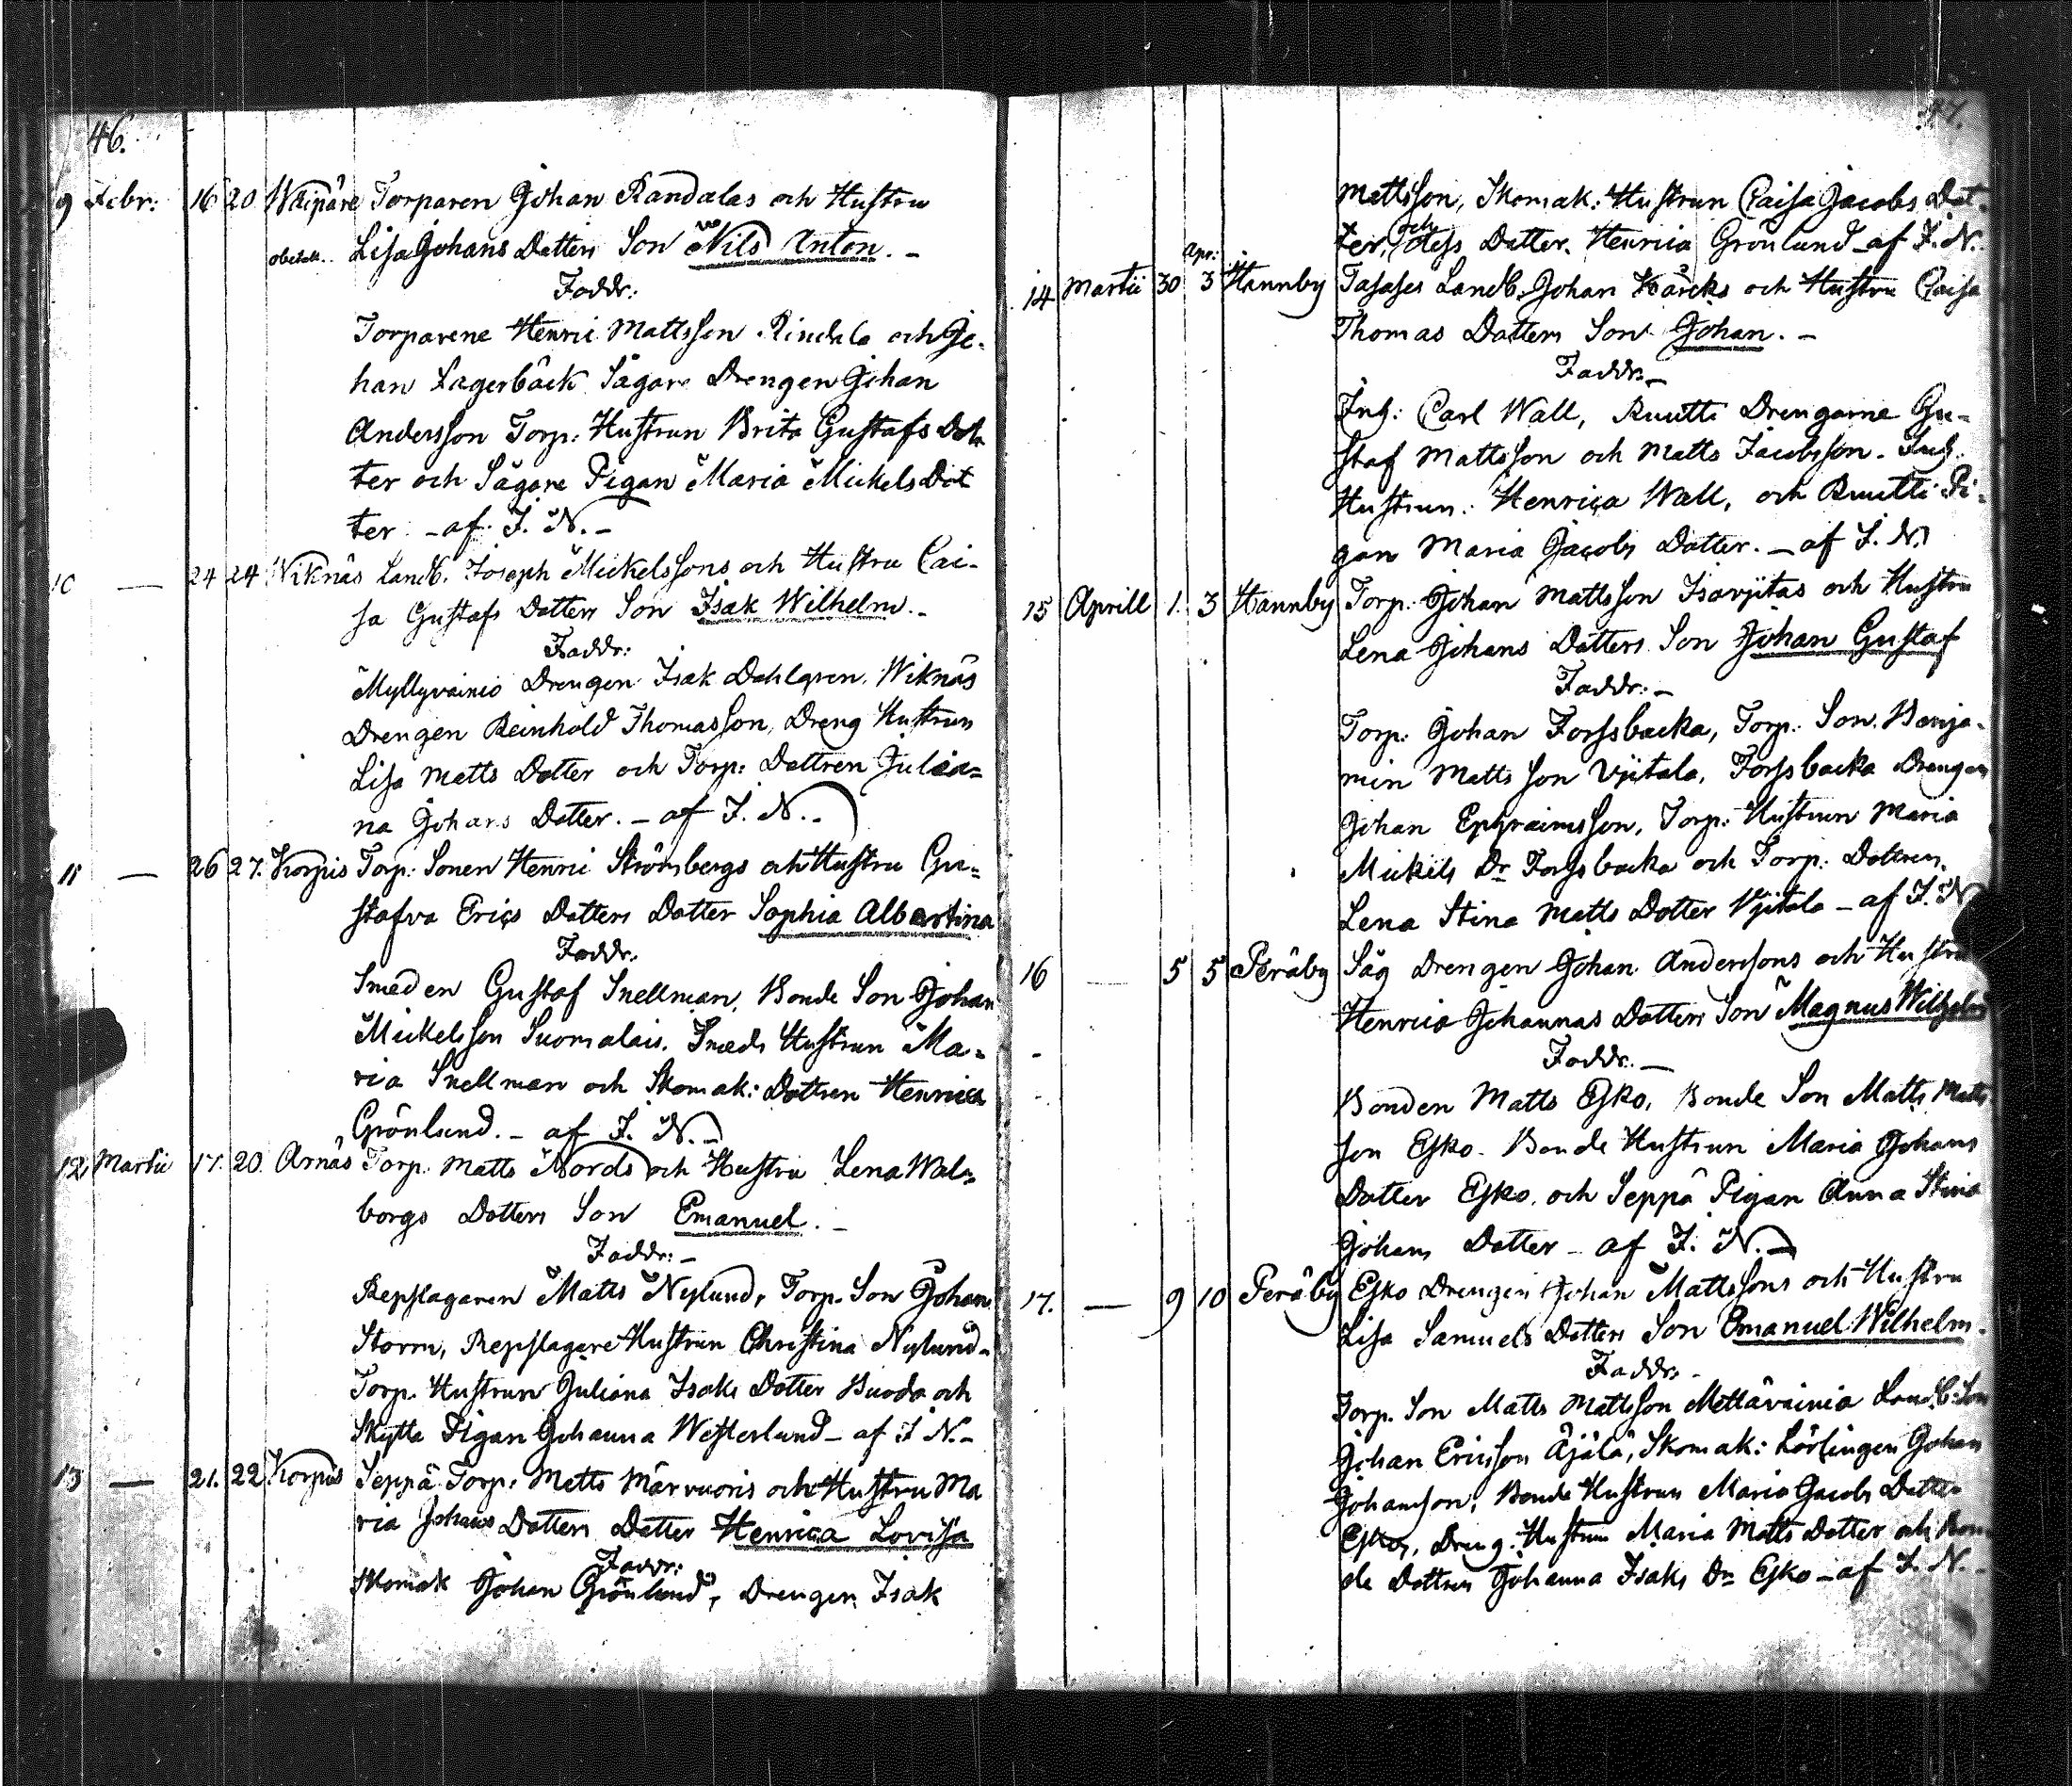 46.
9 Febr: 16 20 Waipäre Torparen Johan Randalas och Hustru
Lisa Johans Datters Son Nils Anton. -
Faddr:
Torparene Henric Mattsson Rindala och Jo-
han Lagerbäck Sågare Drengen Johan
Andersson Torp: Hustrun Brita Gustafs Dot
ter och Sågare Pigan Maria Mickels Dot
ter - af J. N. -
10 — 24 24 Wiknäs Landb. Joseph Mickelssons och Hustru Cai-
sa Gustafs Datters Son Isak Wilhelm. -
Faddr:
Myllyvainio Drengen Isak Dahlgren, Wiknäs
Drengen Reinhold Thomasson, Dreng Hustrun
Lisa Matts Dotter och Torp: Dottren Julia=
na Johans Dotter. - af J. N. -
11 — 26 27. Korpis Torp: Sonen Henric Strömbergs och Hustru Gu=
stafva Erics Datters Dotter Sophia Albertina
Faddr.
Smeden Gustaf Snellman, Bonde Son Johan
Mickelsson Suomalais. Smeds Hustrun Ma=
ria Snellman och Skomak: Dottren Henrica
Grönlund. - af J. N. -
12 Martii 17. 20. Arnäs Torp. Matts Nords och Hustru Lena Wal=
borgs Dotters Son Emanuel. -
Faddr: -
Repslagaren Matts Nylund, Torp. Son Johan
Storm, Repslagare Hustrun Christina Nylund-
Torp. Hustrun Juliana Isaks Dotter Buoda och
Skytta Pigan Johanna Westerlund - af J N. -
13 — 21. 22 Korpis Seppä Torp: Matts Märvuoris och Hustru Ma
ria Johans Dotters Dotter Henrica Lovisa
Faddr:
Skomak Johan Grönlund, Drengen Isak
47.
Mattsson, Skomak: Hustrun Caisa Jacobs Dot-
ter, och Dotter. Henrica Grönlund - af J. N.
Apr:
14 Martii 30 3 Hannby Landb. Johan Kårcks och Hustru Caisa
Thomas Datters Son Johan. -
Faddr: -
Inh: Carl Wall, Ruutti Drengarne Gu-
staf Mattsson och Matts Jacobsson. Inh.
Hustrun: Henrica Wall, och Ruutti Pi-
gan Maria Jacobs Dotter. - af J. N.
15 Aprill 1. 3 Hannby Torp: Johan Mattsson Isovjitas och Hustru
Lena Johans Datters Son Johan Gustaf
Faddr: -
Torp: Johan Forssbacka, Torp: Son Benja-
min Mattsson Vjitala, Forssbacka Drengen
Johan Ephraimsson, Torp: Hustrun Maria
Mickels Dr Forssbacka och Torp: Dottren.
Lena Stina Matts Dotter Vjitala - af J. N
16 — 5 5 Peräby Såg Drengen Johan Anderssons och Hustru
Henrica Johannas Dotters Son Magnus Wilhelm
Faddr: -
Bonden Matts Esko, Bonde Son Matts Matts
son Esko. Bonde Hustrun Maria Johans
Dotter Esko. och Seppä Pigan Anna Stina
Johans Dotter - af J. N. -
17. — 9 10 Peräby Esko Drengen Johan Mattssons och Hustru
Lisa Samuels Datters Son Emanuel Wilhelm.
Faddr. -
Torp. Son Matts Mattsson Mettävainio Landb: Son
Johan Ericsson Äjälä, Skomak: Lärlingen Johan
Johansson, Bonde Hustrun Maria Jacobs Dotter
Esko, Dreng. Hustrun Maria Matts Dotter och Bon
de Dottren Johanna Isaks Dr Esko - af J. N. -